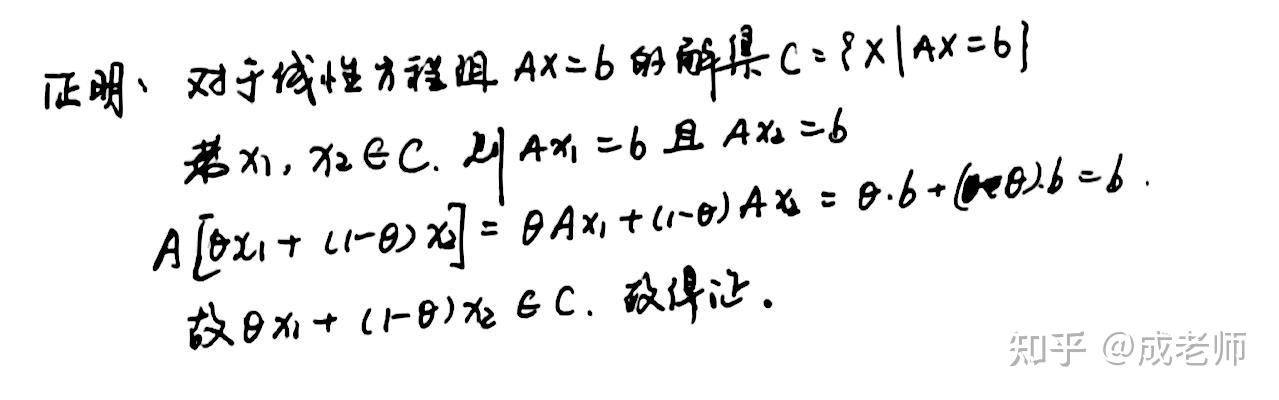 证明、对于线性方程组 Ax=b 的解集 C={x|Ax=b}
若 x₁, x₂∈C. 则 Ax₁=b 且 Ax₂=b
A[θx₁+(1-θ)x₂]=θAx₁+(1-θ)Ax₂=θ·b+(1-θ)·b=b.
故 θx₁+(1-θ)x₂∈C. 故得证.
知乎 @成老师